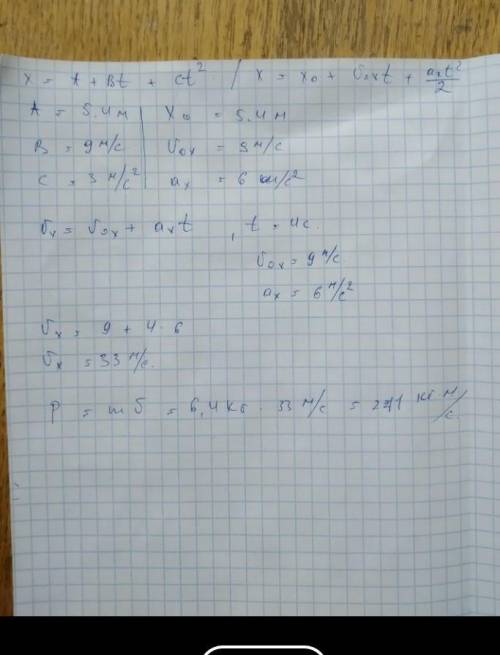 x = A + Bt + ct² / x = x₀ + υ₀ₓt + aₓt²/2
A = 5.4 м | x₀ = 5.4 м
B = 9 м/с | υ₀ₓ = 9 м/с
c = 3 м/с² | aₓ = 6 м/с²
υₓ = υ₀ₓ + aₓt , t = 4с.
υ₀ₓ = 9 м/с
aₓ = 6 м/с²
υₓ = 9 + 4 · 6
υₓ = 33 м/с.
p = mυ = 6,4 кг · 33 м/с = 211 кг м/с